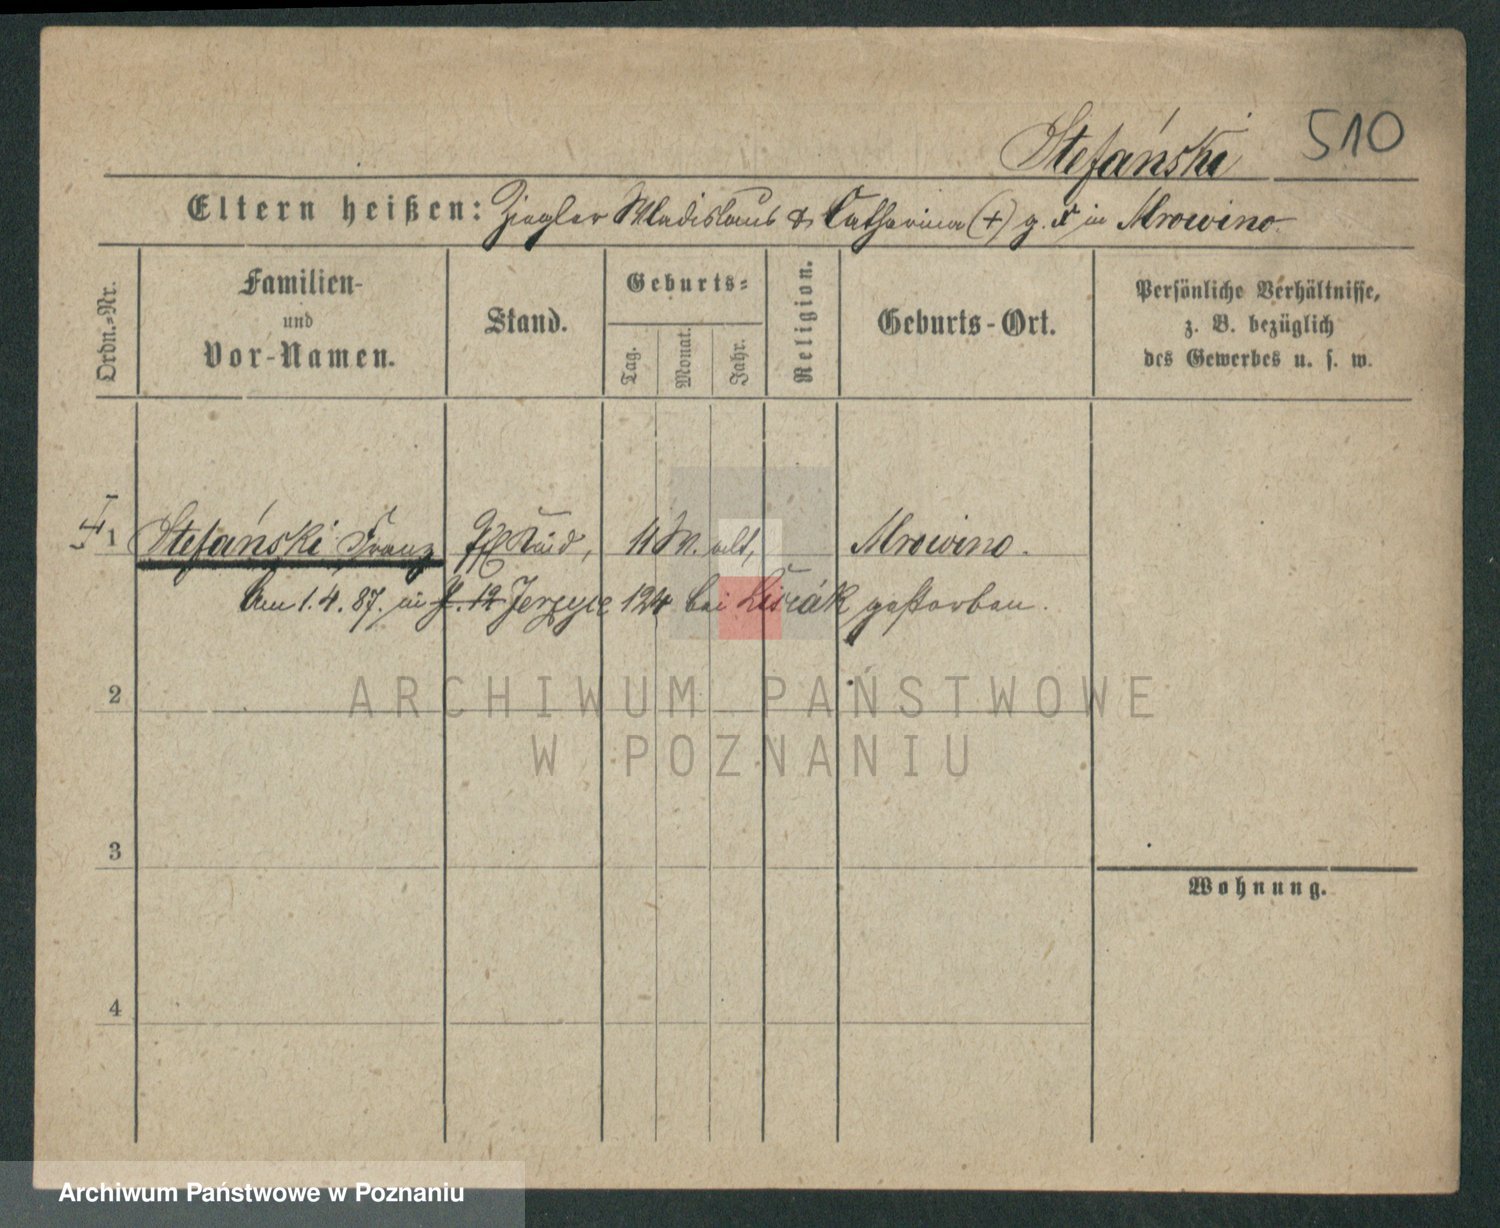 Stefański 510
Eltern heißen: Ziegler Wladislaus & Catharina (+) g. F in Mrowino
Ordn.-Nr.
Familien-
und
Vor-Namen.
Stand.
Geburts-
Tag.
Monat.
Jahr.
Religion.
Geburts-Ort.
Persönliche Verhältnisse,
z. B. bezüglich
des Gewerbes u. s. w.
1 Stefański Franz Kind, 11 W. alt, Mrowino.
Am 1.4.87. in P. 12 Jerzyce 124 bei Lisiák gestorben.
2
ARCHIWUM PAŃSTWOWE
W POZNANIU
3
Wohnung.
4
Archiwum Państwowe w Poznaniu